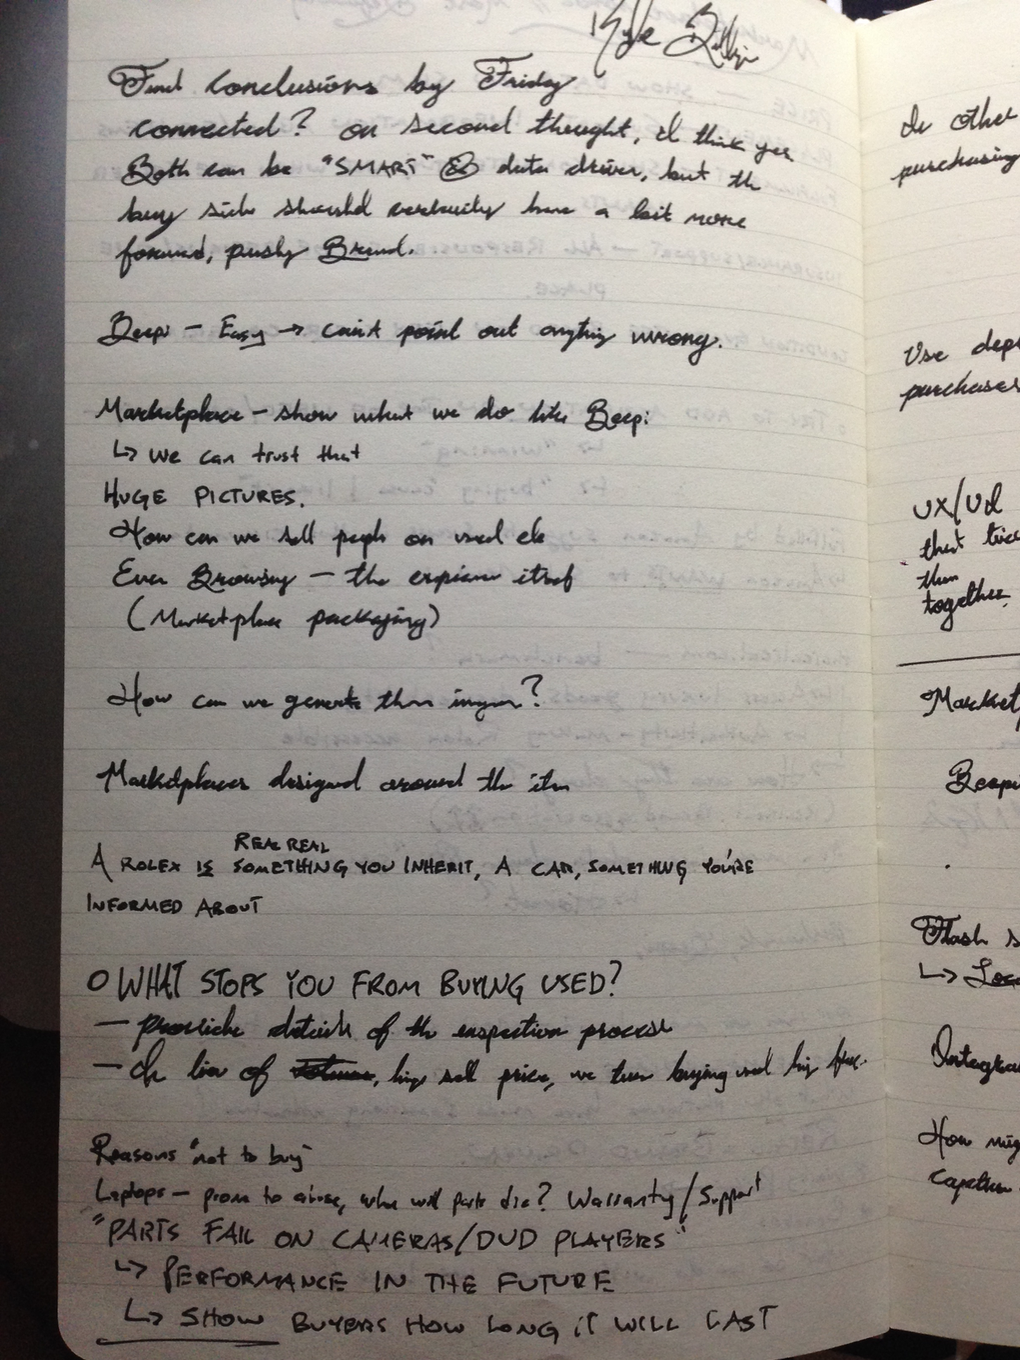 Kyle
Find conclusions by Friday
connected? on second thought, I think yes
Both can be "SMART" & data driven, but the
buy side should certainly have a bit more
forward, pushy Brand.
Beepi - Easy → can't point out anything wrong.
Marketplace - show what we do like Beepi
↳ we can trust that
HUGE PICTURES.
How can we sell people on used
Even Browsing - the itself
(Marketplace packaging)
How can we generate
Marketplaces designed around the item
REAL REAL
A ROLEX IS SOMETHING YOU INHERIT, A CAR, SOMETHING YOU'RE
INFORMED ABOUT
O WHAT STOPS YOU FROM BUYING USED?
- details of the inspection process
- In lieu of sell price, we buying used
Reasons "not to buy"
Laptops - prone to abuse, when will parts die? Warranty/Support
"PARTS FAIL ON CAMERAS/DVD PLAYERS"
↳ PERFORMANCE IN THE FUTURE
↳ SHOW BUYERS HOW LONG IT WILL LAST
In other
purchasing
Use
purchases
UX/UI
that
them
together.
Beepi
Flash
↳
How